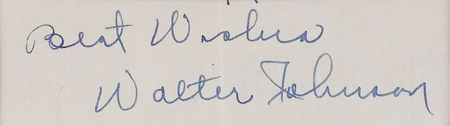 Best Wishes
Walter Johnson